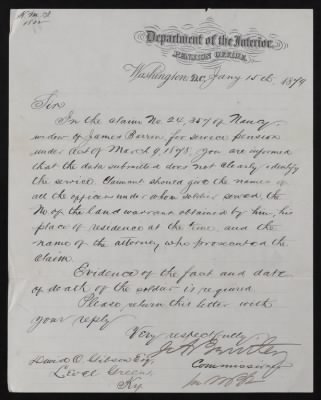 Department of the Interior,
PENSION OFFICE,
Washington, D.C., Jany 15th 1879
Sir
In the claim No. 24,357 of Nancy,
widow of James Barron for service pension
under Act of March 9, 1878, you are informed
that the data submitted does not clearly identify
the service. Claimant should give the names of
all the officers under whom soldier served, the
No of the land warrant obtained by him, his
place of residence at the time, and the
name of the attorney who prosecuted the
claim.
Evidence of the fact and date
of death of the soldier is required.
Please return this letter with
your reply
Very respectfully
J A Bentley
Commissioner
David O. Gibson Esq,
Level Green,
Ky.